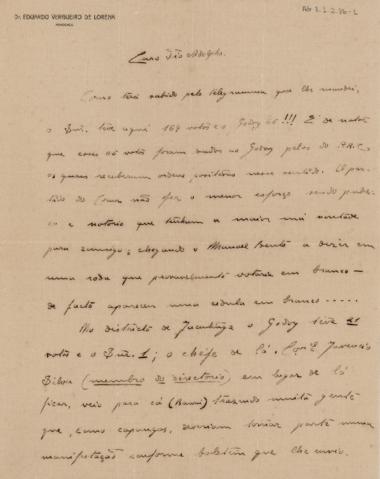 Dr. EDUARDO VERGUEIRO DE LORENA
Caro Tio Adolpho.
Como terá sabido pelo telegramma que lhe mandei,
o Dut. teve aqui 169 votos e o Godoy 26!!! É de notar
que esses 26 votos foram dados ao Godoy pelos do P.R.C.
os quaes receberam ordens positivas nesse sentido. O par-
tido do não fez o menor esforço sendo publi-
co e notorio que tinham a maior má vontade
para comigo; chegando o Manuel Bento a dizer em
uma roda que provavelmente votaria em branco –
de facto appareceu uma cedula em branco .....
No districto de Jacutinga o Godoy teve 21
votos e o Dut. 1; o chefe de lá, Juvencio
Silva (membro do directorio) em logar de lá
ficar, veio para cá (Bauru) trazendo muita gente
que, como capangas, deveriam tomar parte numa
manifestação conforme boletim que lhe envio.